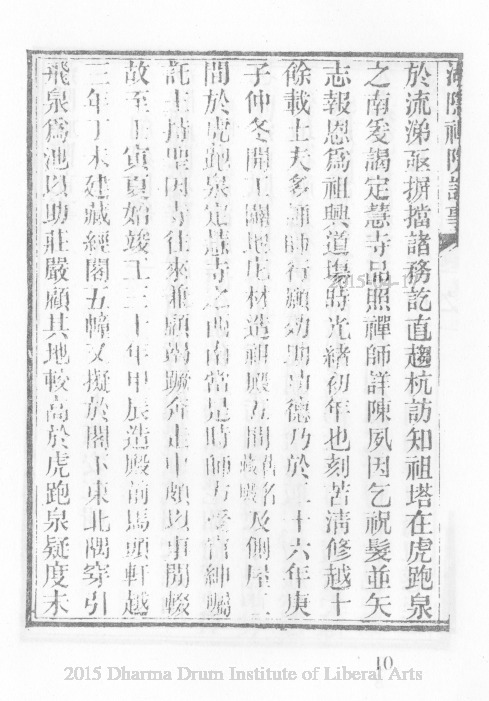 於流涕亟摒擋諸務訖直趨杭訪知祖塔在虎跑泉
之南爰謁定慧寺品照禪師詳陳夙因乞祝髮並矢
志報恩爲祖興道場時光緒初年也刻苦清修越十
餘載士夫多師行願功德乃於二十六年庚
子仲冬開工闢地庀材造祖殿五間及側屋二
間於虎跑泉定慧寺之西南當是時師方受官紳囑
託主持聖因寺往來兼顧竭蹶奔走中頗以事間輟
故至壬寅夏始竣工三十年甲辰造殿前馬頭軒越
三年丁未建藏經閣五幢又擬於閣下東北隅穿引
飛泉爲池以助莊嚴顧其地較高於虎跑泉疑度未
10
2015 Dharma Drum Institute of Liberal Arts